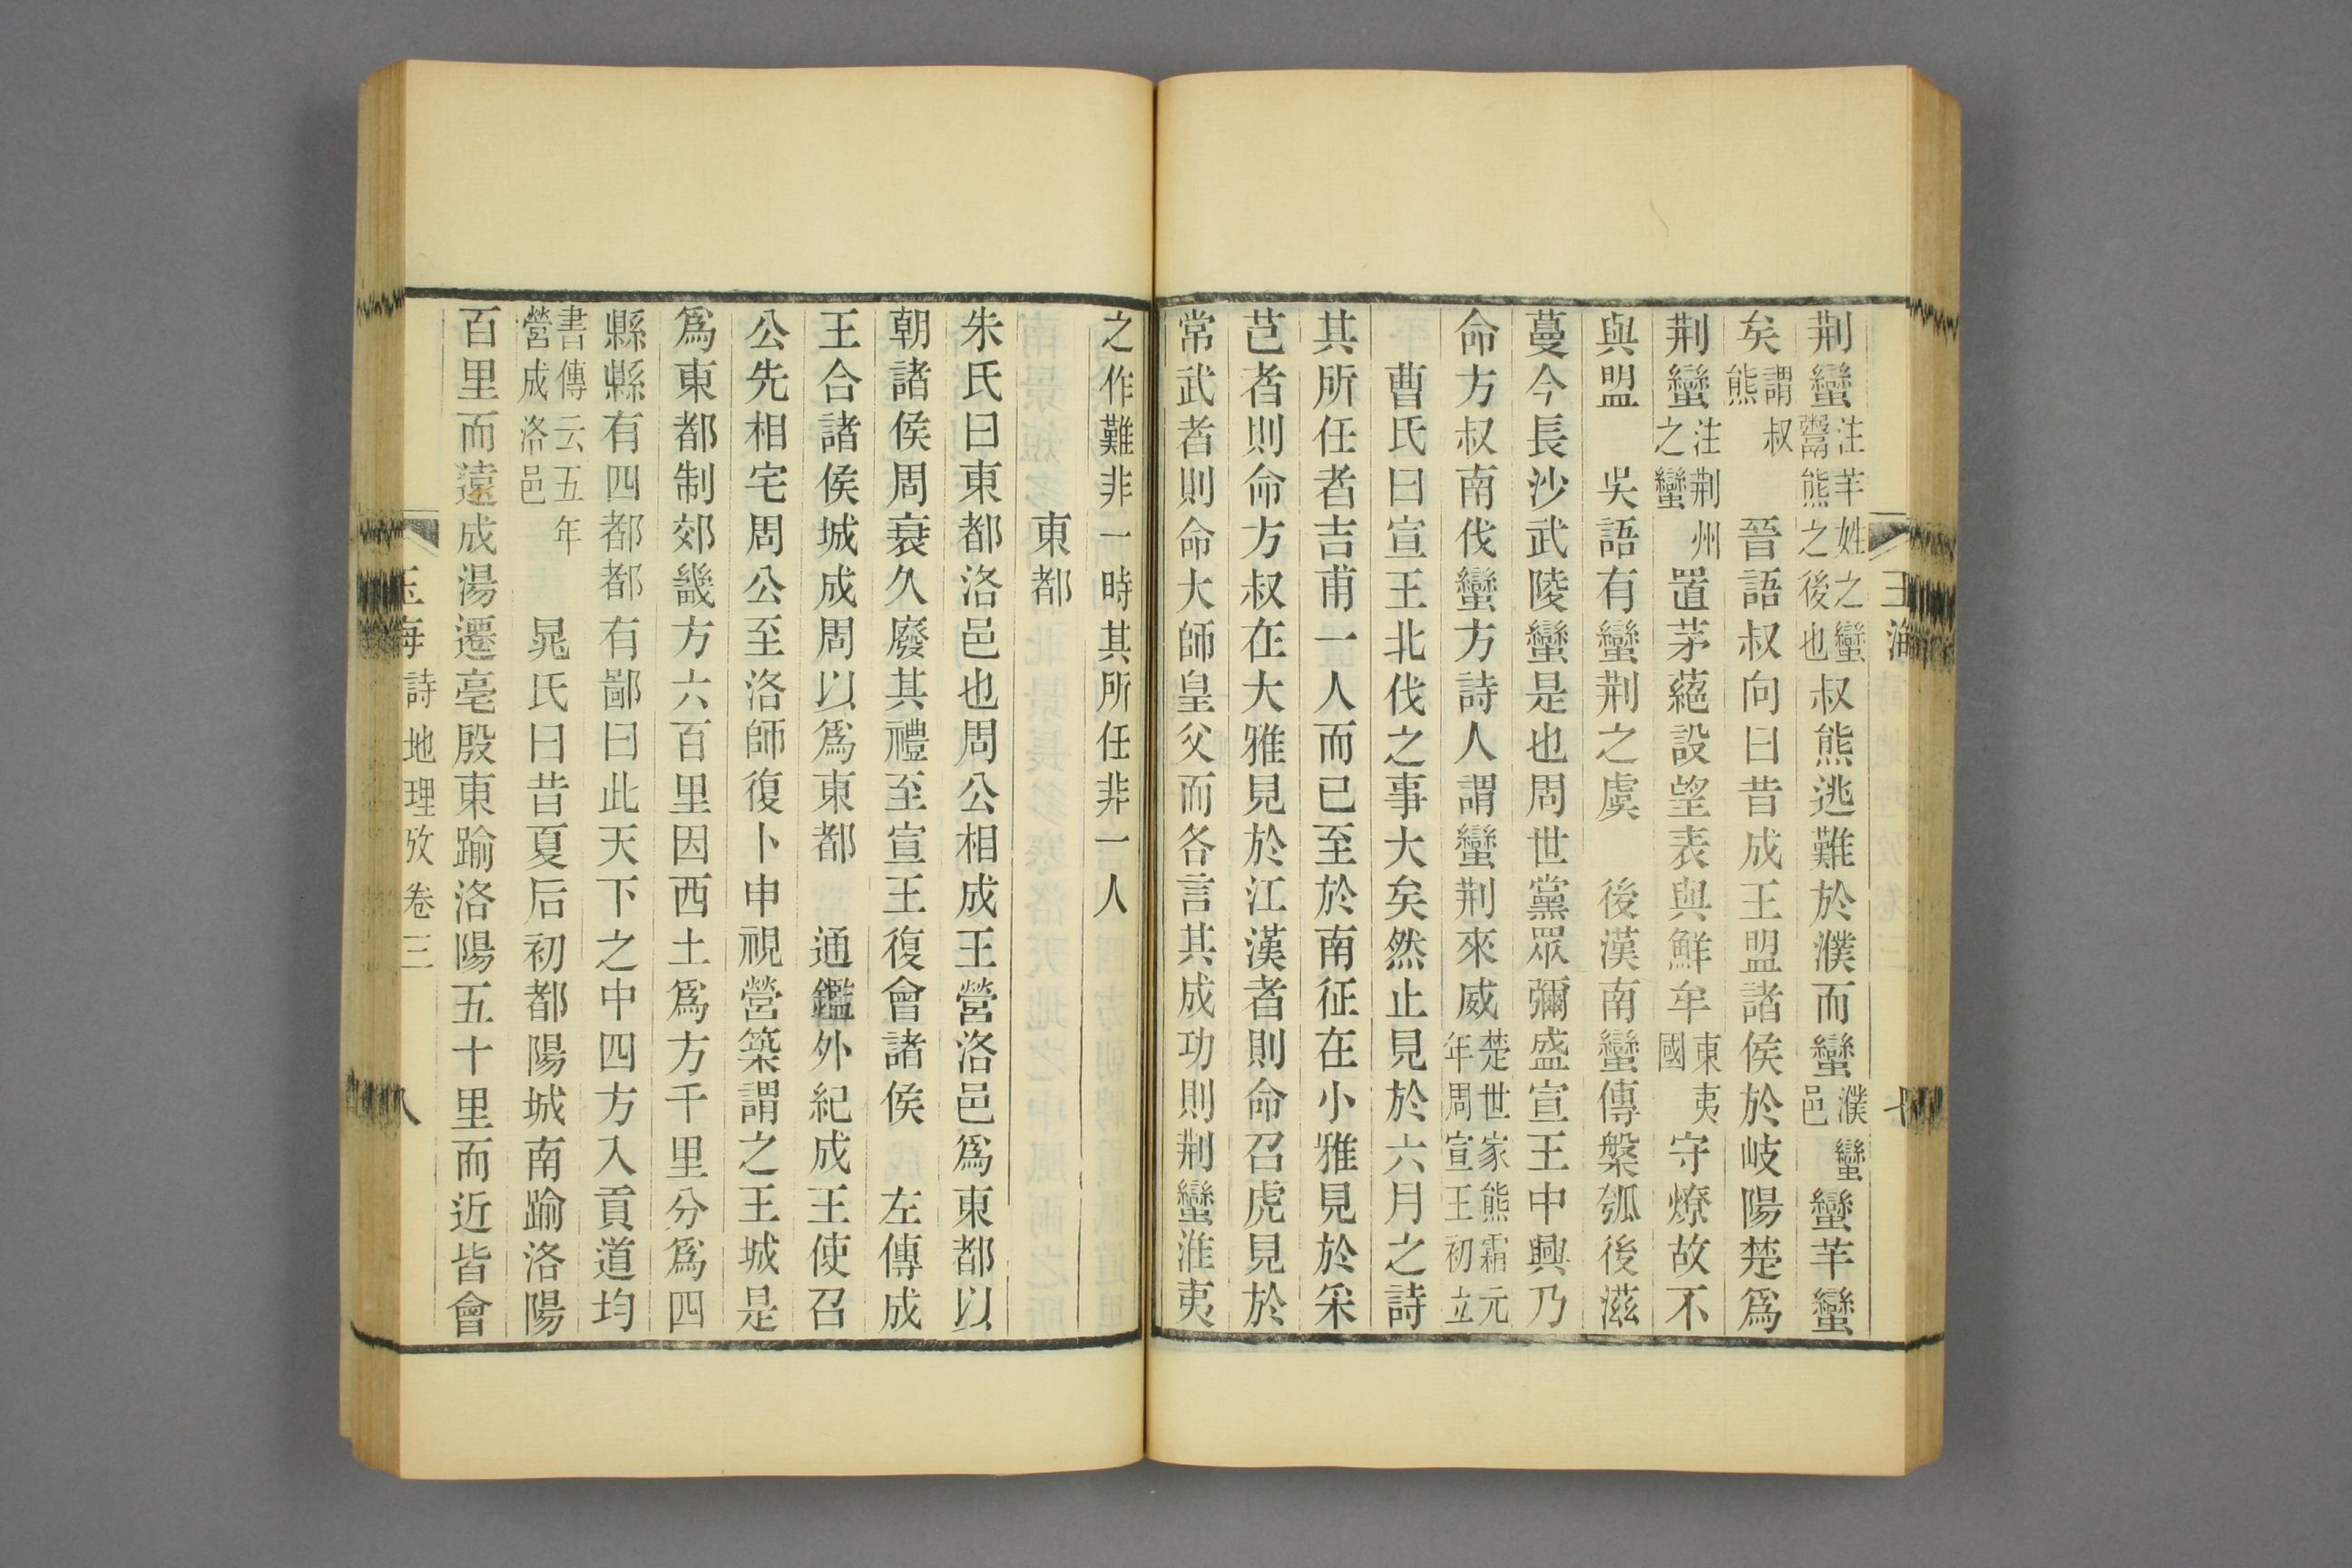 玉海
七
荆蠻注羋姓之蠻鬻熊之後也叔熊逃難於濮而蠻濮蠻邑蠻羋蠻
矣謂叔熊　晉語叔向曰昔成王盟諸侯於岐陽楚爲
荆蠻注荆州之蠻置茅蕝設望表與鮮牟東夷國守燎故不
與盟　吳語有蠻荆之虞　後漢南蠻傳槃瓠後滋
蔓今長沙武陵蠻是也周世黨眾彌盛宣王中興乃
命方叔南伐蠻方詩人謂蠻荆來威楚世家熊霜元年周宣王初立
曹氏曰宣王北伐之事大矣然止見於六月之詩
其所任者吉甫一人而已至於南征在小雅見於采
芑者則命方叔在大雅見於江漢者則命召虎見於
常武者則命大師皇父而各言其成功則荆蠻淮夷
之作難非一時其所任非一人
東都
朱氏曰東都洛邑也周公相成王營洛邑爲東都以
朝諸侯周衰久廢其禮至宣王復會諸侯　左傳成
王合諸侯城成周以爲東都　通鑑外紀成王使召
公先相宅周公至洛師復卜申視營築謂之王城是
爲東都制郊畿方六百里因西土爲方千里分爲四
縣縣有四都都有鄙曰此天下之中四方入貢道均
書傳云五年營成洛邑　晁氏曰昔夏后初都陽城南踰洛陽
百里而遠成湯遷亳殷東踰洛陽五十里而近皆會
玉海詩地理攷卷三
八